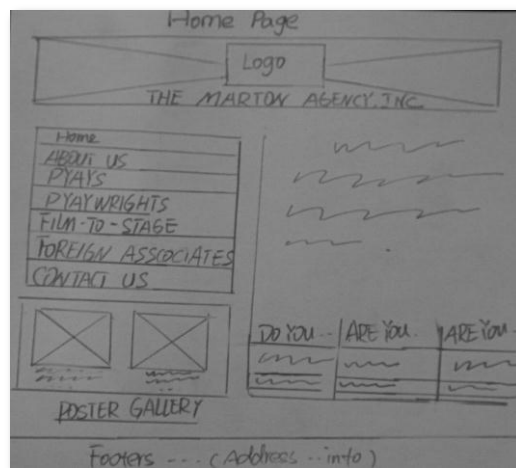 Home Page
Logo
THE MARTON AGENCY.INC
Home
ABOUT US
PYAYS
PYAYWRIGHTS
FILM-TO-STAGE
FOREIGN ASSCOCIATES
CONTACT US
DO YOU...
ARE YOU.
ARE YOU..
POSTER GALLERY
Footers ---- (Address -- info)